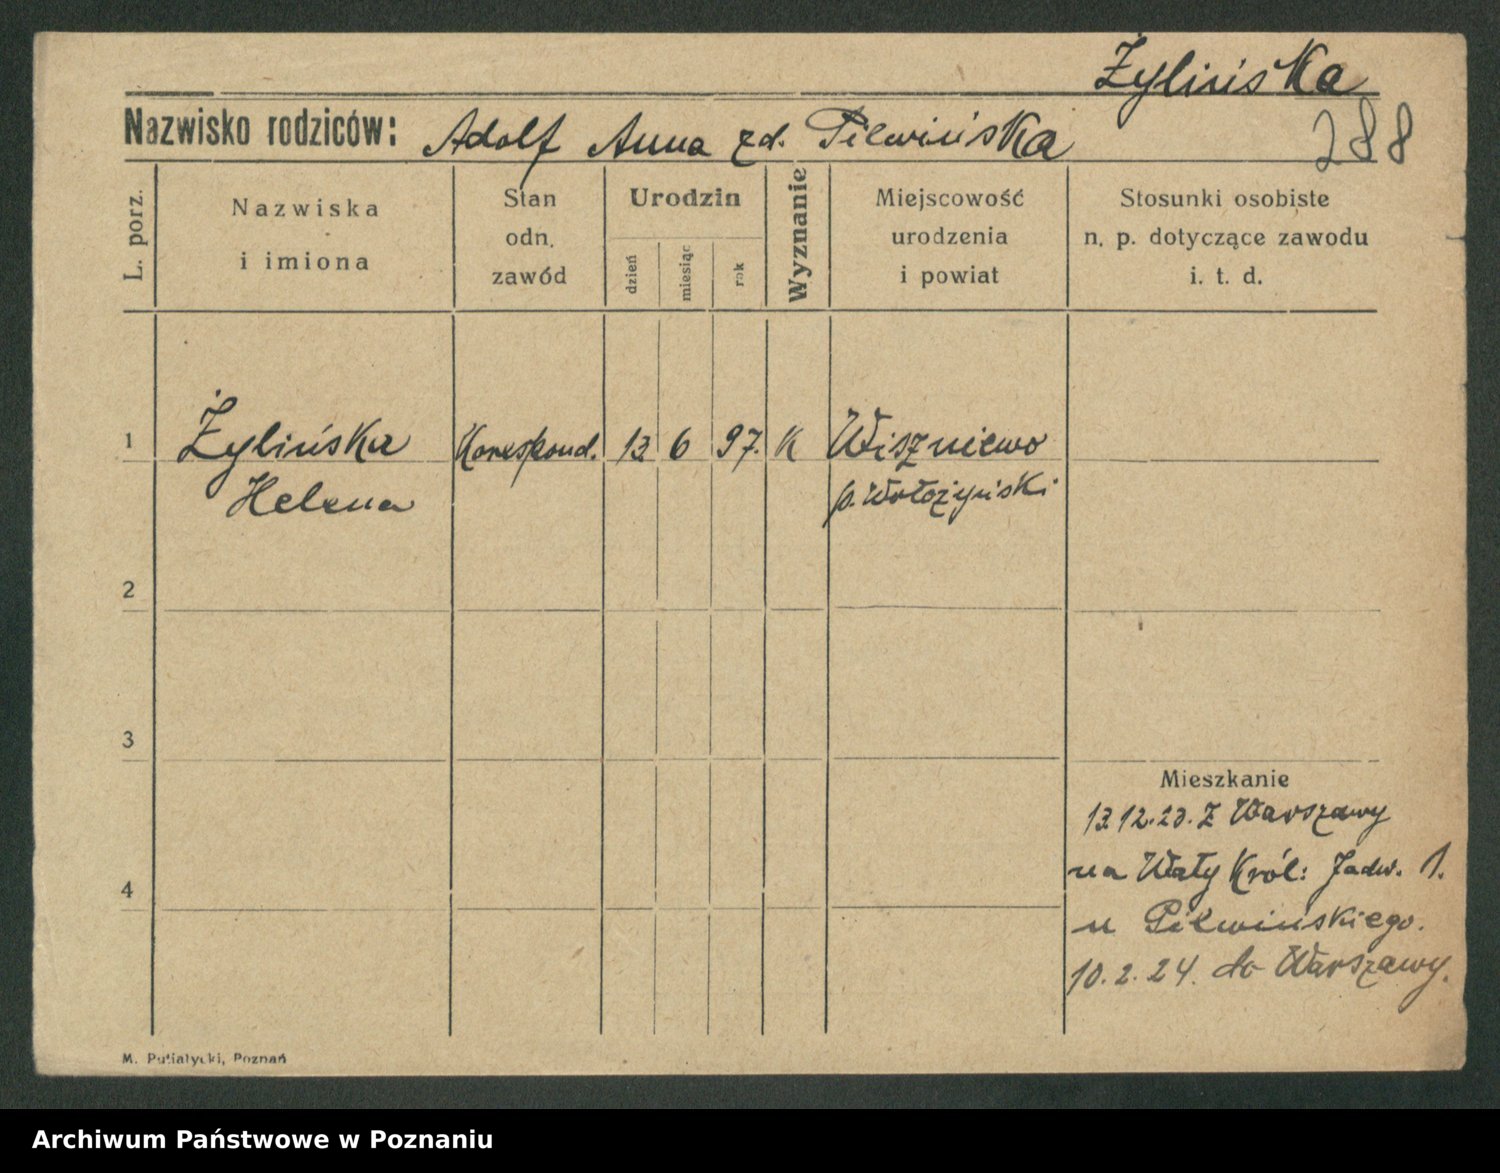 Żylińska
288
Nazwisko rodziców: Adolf Anna zd. Pilwińska
L. porz.
Nazwiska
i imiona
Stan
odn.
zawód
Urodzin
dzień
miesiąc
rok
Wyznanie
Miejscowość
urodzenia
i powiat
Stosunki osobiste
n. p. dotyczące zawodu
i. t. d.
1 Żylińska Korespond. 13 6 97. K Wiszniewo
Helena p. Wołożyński
2
3
Mieszkanie
13.12.23. Z Warszawy
4
na Wały Król: Jadw. 1.
u Pilwińskiego.
10.2.24. do Warszawy.
M. Putiatycki, Poznań
Archiwum Państwowe w Poznaniu